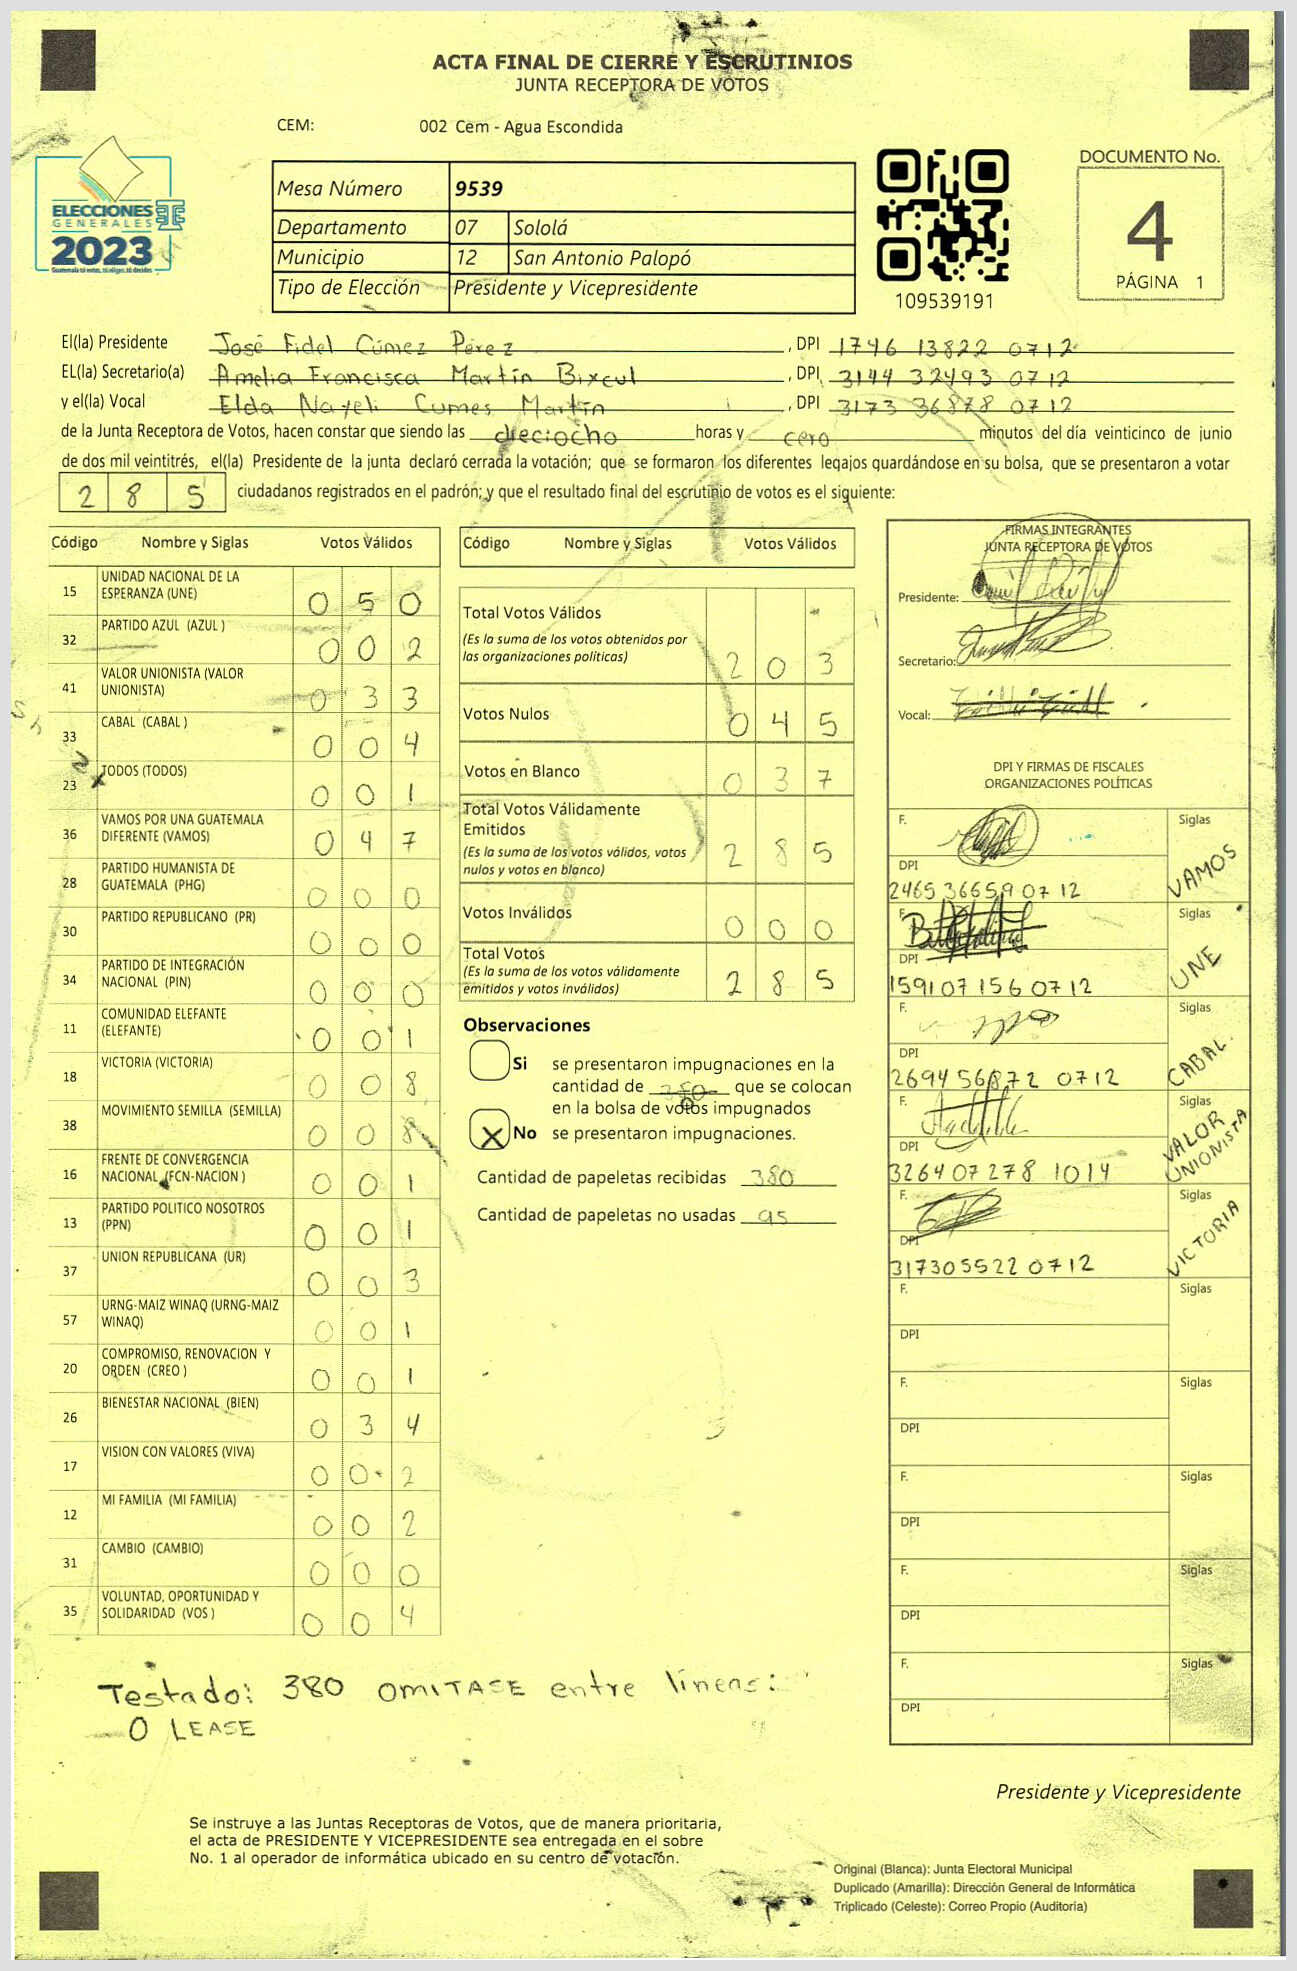 ACTA FINAL DE CIERRE Y ESCRUTINIOS
JUNTA RECEPTORA DE VOTOS
CEM: 002 Cem - Agua Escondida
ELECCIONES
GENERALES
2023
Guatemala tú votas, tú eliges, tú decides
Mesa Número 9539
Departamento 07 Sololá
Municipio 12 San Antonio Palopó
Tipo de Elección Presidente y Vicepresidente
109539191
DOCUMENTO No.
4
PÁGINA 1
El(la) Presidente José Fidel Cúmez Pérez , DPI 1746 13822 0712
EL(la) Secretario(a) Amelia Francisca Martín Bixcul , DPI 3144 32493 0712
y el(la) Vocal Elda Nayeli Cumes Martín , DPI 3173 36878 0712
de la Junta Receptora de Votos, hacen constar que siendo las dieciocho horas y cero minutos del día veinticinco de junio
de dos mil veintitrés, el(la) Presidente de la junta declaró cerrada la votación; que se formaron los diferentes legajos guardándose en su bolsa, que se presentaron a votar
2 8 5 ciudadanos registrados en el padrón; y que el resultado final del escrutinio de votos es el siguiente:
Código Nombre y Siglas Votos Válidos
15 UNIDAD NACIONAL DE LA ESPERANZA (UNE) 0 5 0
32 PARTIDO AZUL (AZUL ) 0 0 2
41 VALOR UNIONISTA (VALOR UNIONISTA) 0 3 3
33 CABAL (CABAL ) 0 0 4
23 TODOS (TODOS) 0 0 1
36 VAMOS POR UNA GUATEMALA DIFERENTE (VAMOS) 0 4 7
28 PARTIDO HUMANISTA DE GUATEMALA (PHG) 0 0 0
30 PARTIDO REPUBLICANO (PR) 0 0 0
34 PARTIDO DE INTEGRACIÓN NACIONAL (PIN) 0 0 0
11 COMUNIDAD ELEFANTE (ELEFANTE) 0 0 1
18 VICTORIA (VICTORIA) 0 0 8
38 MOVIMIENTO SEMILLA (SEMILLA) 0 0 8
16 FRENTE DE CONVERGENCIA NACIONAL (FCN-NACION ) 0 0 1
13 PARTIDO POLITICO NOSOTROS (PPN) 0 0 1
37 UNION REPUBLICANA (UR) 0 0 3
57 URNG-MAIZ WINAQ (URNG-MAIZ WINAQ) 0 0 1
20 COMPROMISO, RENOVACION Y ORDEN (CREO ) 0 0 1
26 BIENESTAR NACIONAL (BIEN) 0 3 4
17 VISION CON VALORES (VIVA) 0 0 2
12 MI FAMILIA (MI FAMILIA) 0 0 2
31 CAMBIO (CAMBIO) 0 0 0
35 VOLUNTAD, OPORTUNIDAD Y SOLIDARIDAD (VOS ) 0 0 4
Código Nombre y Siglas Votos Válidos
Total Votos Válidos
(Es la suma de los votos obtenidos por
las organizaciones políticas) 2 0 3
Votos Nulos 0 4 5
Votos en Blanco 0 3 7
Total Votos Válidamente
Emitidos
(Es la suma de los votos válidos, votos
nulos y votos en blanco) 2 8 5
Votos Inválidos 0 0 0
Total Votos
(Es la suma de los votos válidamente
emitidos y votos inválidos) 2 8 5
Observaciones
Si se presentaron impugnaciones en la
cantidad de 380 que se colocan
0
en la bolsa de votos impugnados
X No se presentaron impugnaciones.
Cantidad de papeletas recibidas 380
Cantidad de papeletas no usadas 95
FIRMAS INTEGRANTES
JUNTA RECEPTORA DE VOTOS
Presidente:
Secretario:
Vocal:
DPI Y FIRMAS DE FISCALES
ORGANIZACIONES POLÍTICAS
F. Siglas VAMOS
DPI
2465 36659 0712
F. Siglas UNE
DPI
1591 07 156 0712
F. Siglas CABAL
DPI
2694 56872 0712
F. Siglas VALOR UNIONISTA
DPI
3264 07 278 1014
F. Siglas VICTORIA
DPI
317305522 0712
F. Siglas
DPI
F. Siglas
DPI
F. Siglas
DPI
F. Siglas
DPI
F. Siglas
DPI
Testado: 380 OMITASE entre líneas:
0 LEASE
Presidente y Vicepresidente
Se instruye a las Juntas Receptoras de Votos, que de manera prioritaria,
el acta de PRESIDENTE Y VICEPRESIDENTE sea entregada en el sobre
No. 1 al operador de informática ubicado en su centro de votación.
Original (Blanca): Junta Electoral Municipal
Duplicado (Amarilla): Dirección General de Informática
Triplicado (Celeste): Correo Propio (Auditoria)